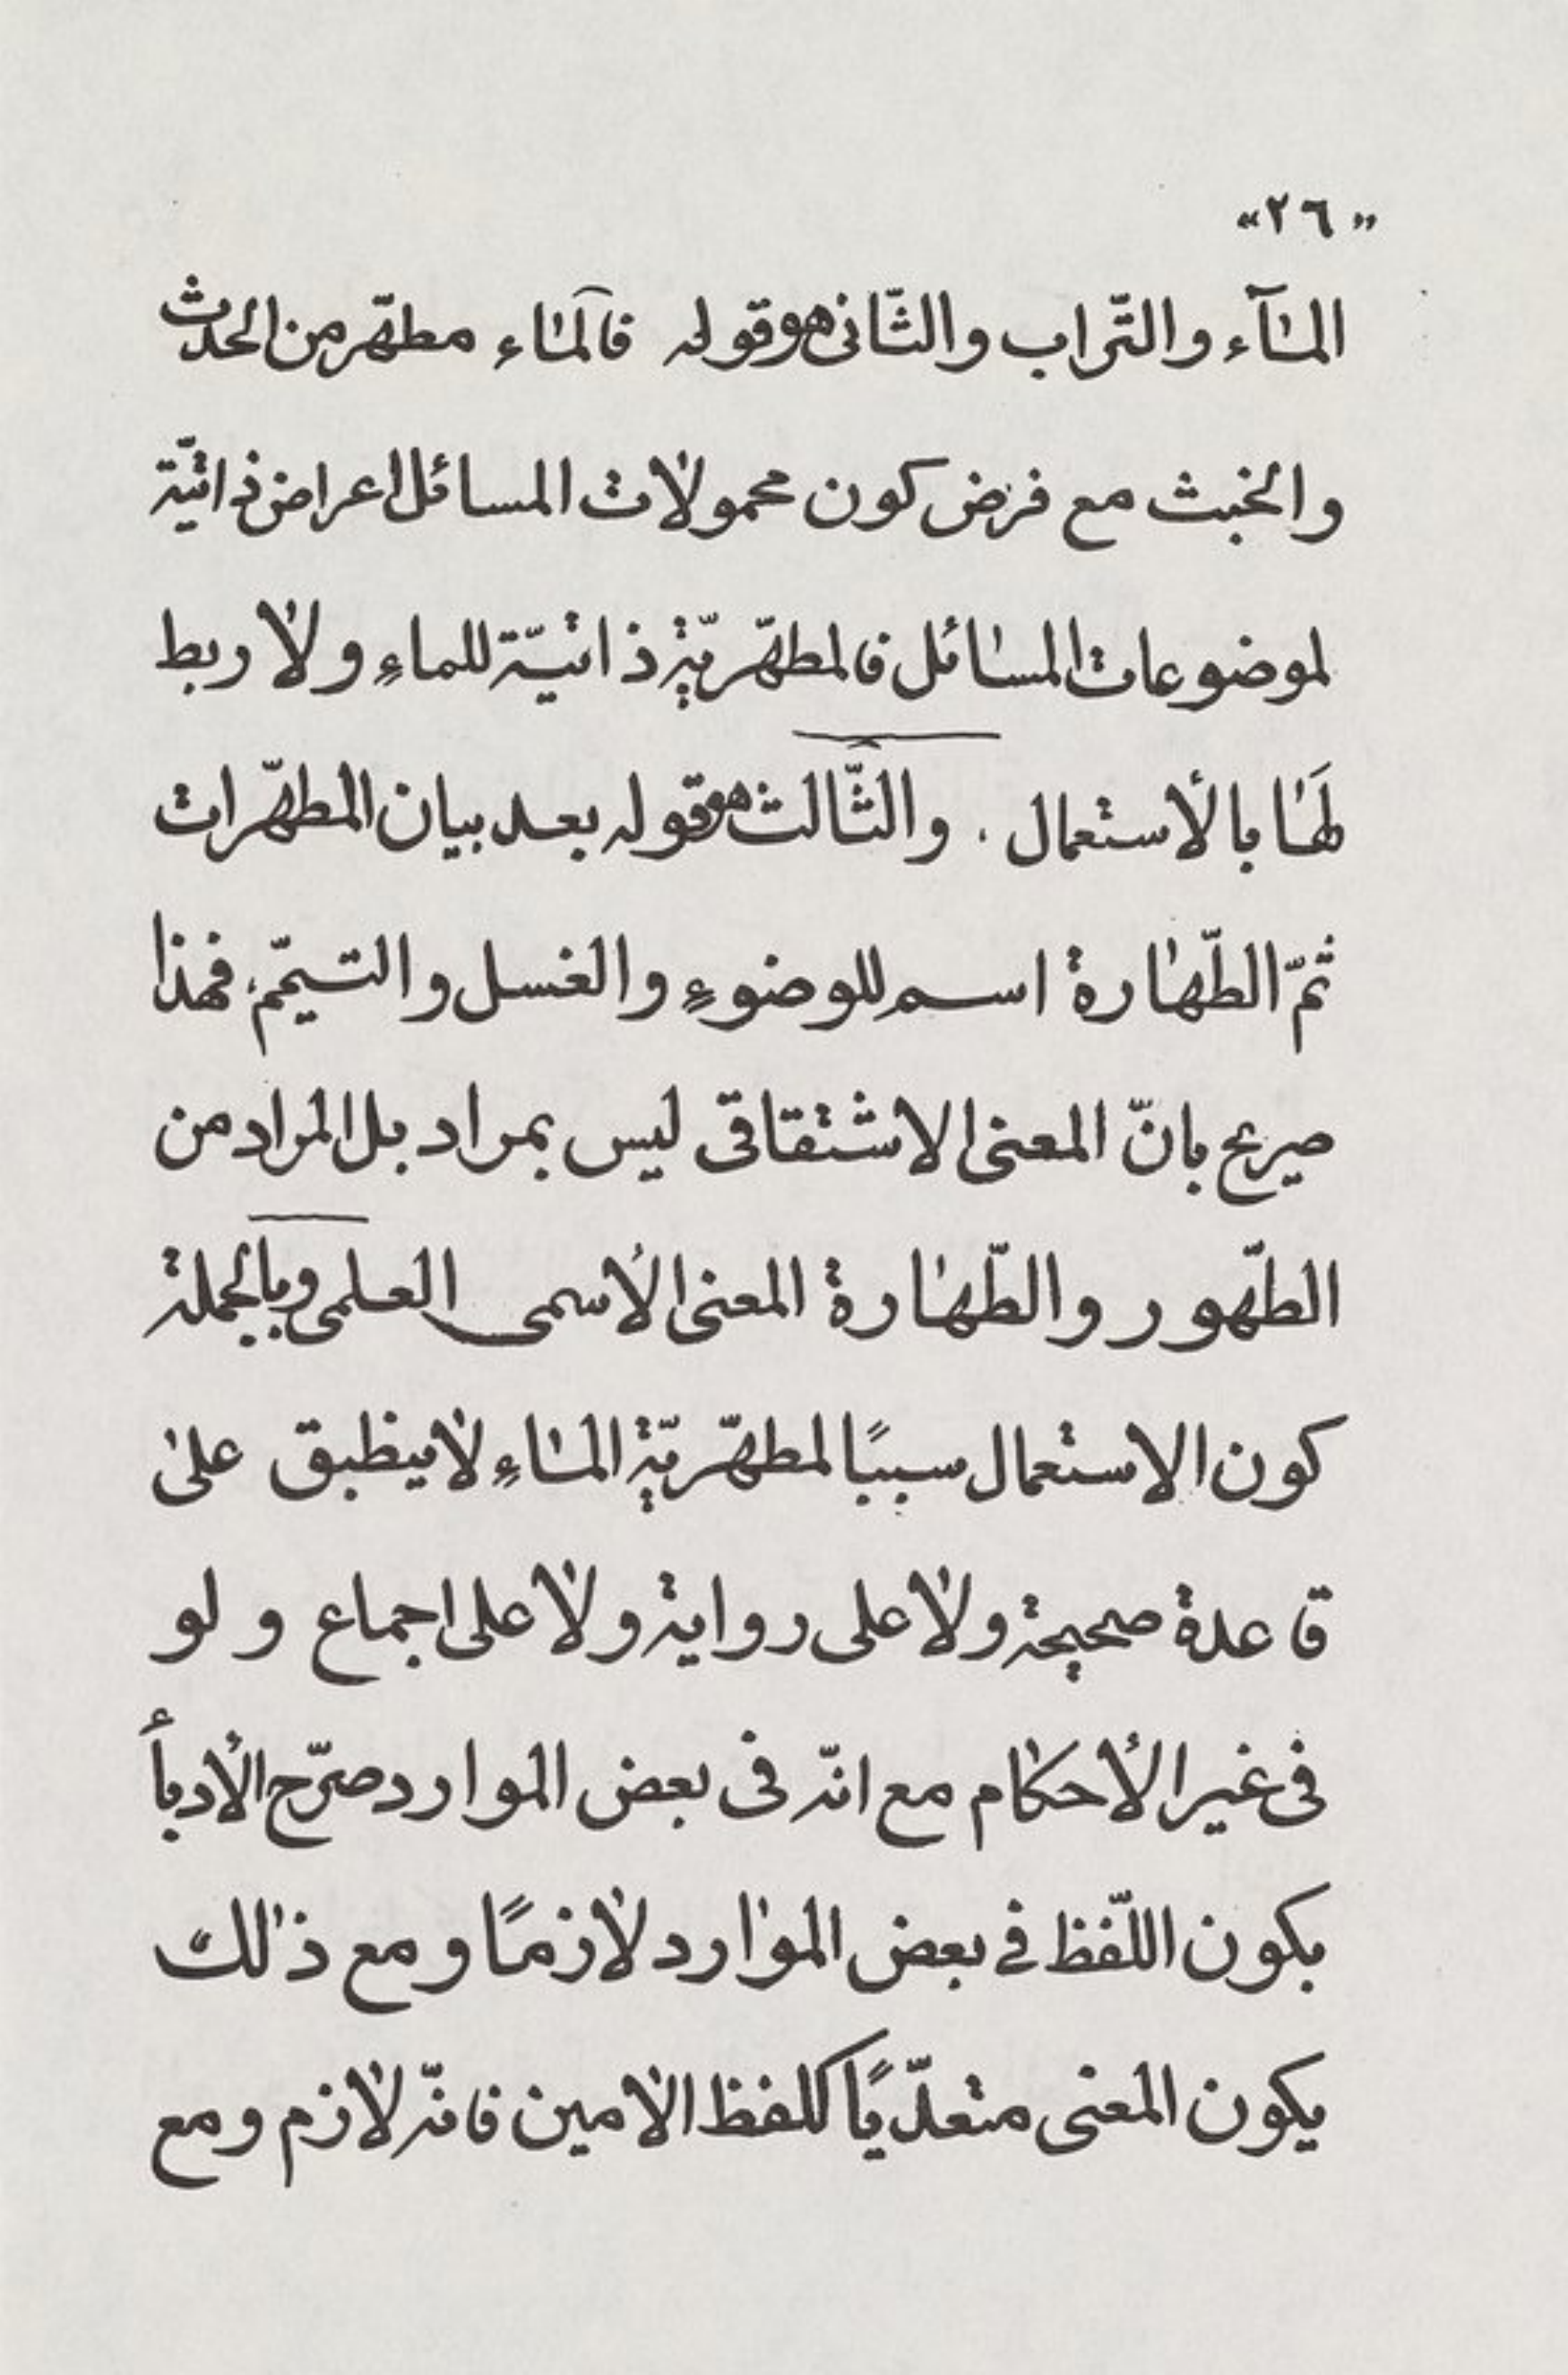 «٢٦»
المآء والتّراب والثّانى هو قوله فالماء مطهّر من الحدث
والخبث مع فرض كون محمولات المسائل اعراض ذاتيّة
لموضوعات المسائل فالمطهّريّة ذاتيّة للماءِ ولا ربط
لها بالأستعمال . والثّالث هو قوله بعد بيان المطهّرات
ثمّ الطّهارة اسم للوضوءِ والغسل والتيمّم، فهذا
صريح بانّ المعنى الاشتقاقى ليس بمراد بل المراد من
الطّهور والطّهارة المعنى الأسمى العلمى وبالجملة
كون الاستعمال سببًا لمطهّريّة الماءِ لا ينطبق على
قاعدة صحيحة ولا على رواية ولا على اجماع ولو
فى غير الأحكام مع انّه فى بعض الموارد صرّح الأدبأ
بكون اللّفظ فى بعض الموارد لازمًا ومع ذلك
يكون المعنى متعدّيًا كلفظ الامين فانّه لازم ومع